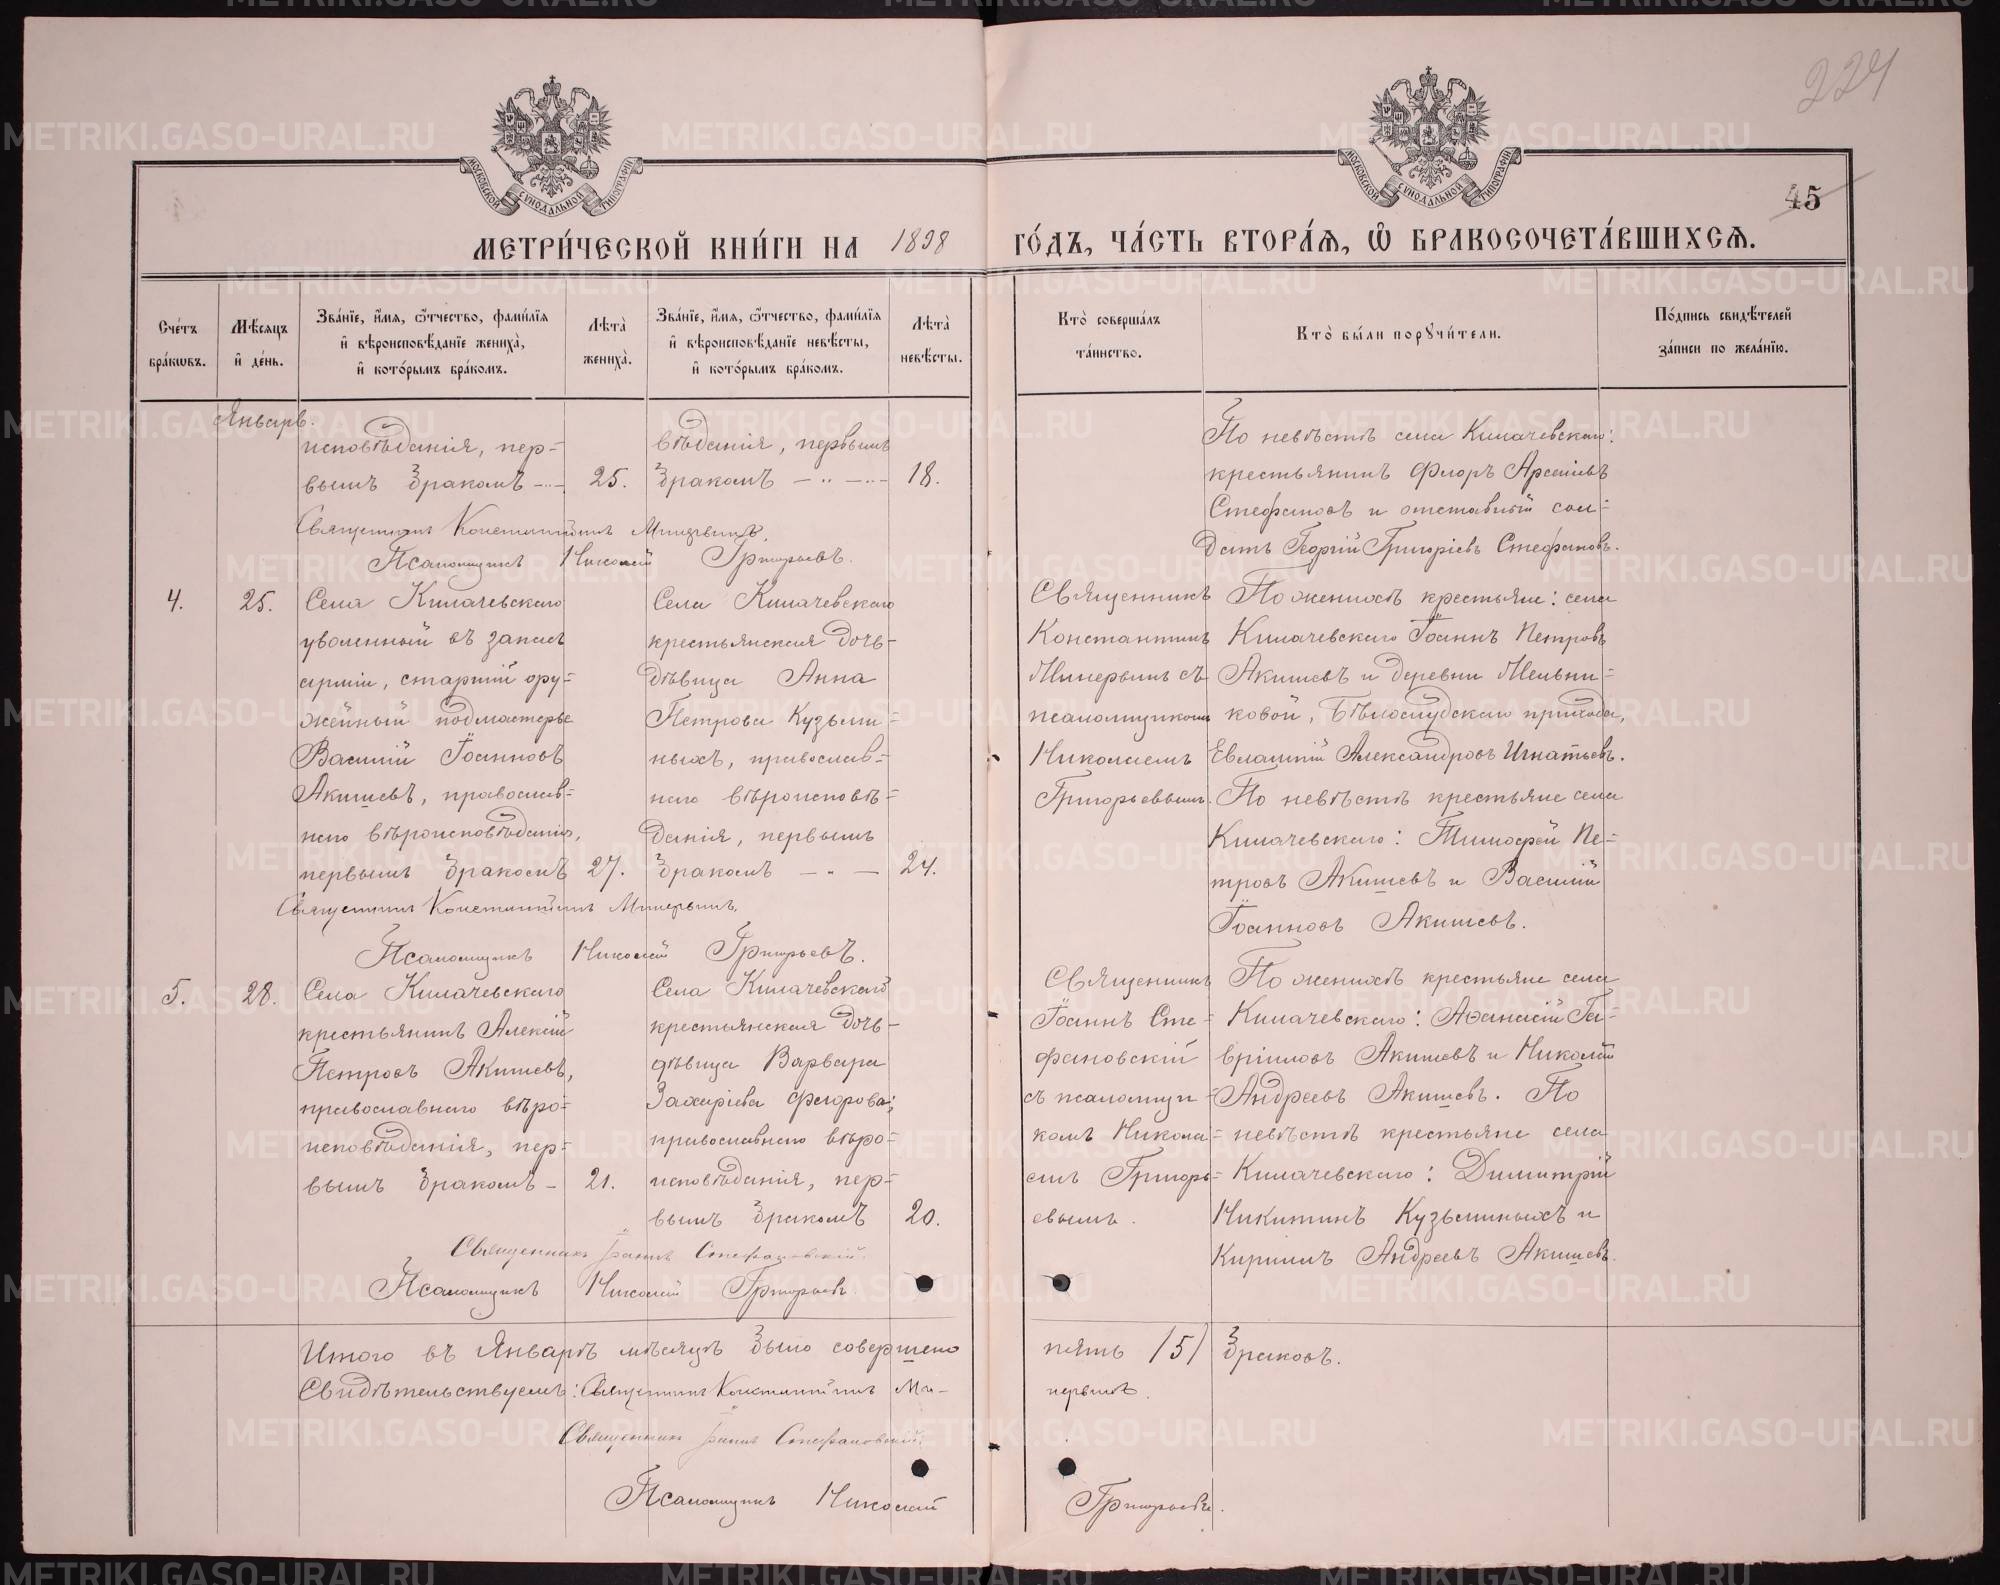 224
45
МОСКОВСКОЙ СѴНОДАЛЬНОЙ ТИПОГРАФІИ
МОСКОВСКОЙ СѴНОДАЛЬНОЙ ТИПОГРАФІИ
МЕТРИ́ЧЕСКОЙ КНИ́ГИ НА 1898 ГО́ДЪ, ЧА́СТЬ ВТОРА́Я, Ѽ БРАКОСОЧЕТА́ВШИХСЯ.
Сче́тъ бра́кѡвъ.
Мѣ́сяцъ и҆ де́нь.
Зва́нїе, и҆́мя, ѻ҆́тчество, фами́лїя и҆ вѣроисповѣ́данїе жениха̀, и҆ кото́рымъ бра́комъ.
Лѣта̀ жениха̀.
Зва́нїе, и҆́мя, ѻ҆́тчество, фами́лїя и҆ вѣроисповѣ́данїе невѣ́сты, и҆ кото́рымъ бра́комъ.
Лѣта̀ невѣ́сты.
Кто̀ соверша́лъ та́инство.
Кто̀ бы́ли порꙋчи́тели.
По́дпись свидѣ́телей за́писи по жела́нїю.
Январь.
исповѣданія, пер=
вымъ бракомъ 25.
вѣданія, первымъ
бракомъ 18.
По невѣстѣ села Килачевскаго:
крестьянинъ Флоръ Арсеніевъ
Стефановъ и отставный сол=
датъ Георгій Григоріевъ Стефановъ.
Священникъ Константинъ Минервинъ.
Псаломщикъ Николай Григорьевъ.
4. 25.
Села Килачевскаго
уволенный въ запасъ
арміи, старшій ору=
жейный подмастерье
Василій Іоанновъ
Акишевъ, православ=
наго вѣроисповѣданія,
первымъ бракомъ 27.
Села Килачевскаго
крестьянская дочь-
дѣвица Анна
Петрова Кузьми=
ныхъ, православ=
наго вѣроисповѣ=
данія, первымъ
бракомъ 24.
Священникъ
Константинъ
Минервинъ съ
псаломщикомъ
Николаемъ
Григорьевымъ.
По женихѣ крестьяне: села
Килачевскаго Іоаннъ Петровъ
Акишевъ и деревни Мельни=
ковой, Бѣлослудскаго прихода,
Евлампій Александровъ Игнатьевъ.
По невѣстѣ крестьяне села
Килачевскаго: Тимофей Пе=
тровъ Акишевъ и Василій
Іоанновъ Акишевъ.
Священникъ Константинъ Минервинъ.
Псаломщикъ Николай Григорьевъ.
5. 28.
Села Килачевскаго
крестьянинъ Алексій
Петровъ Акишевъ,
православнаго вѣро=
исповѣданія, пер=
вымъ бракомъ - 21.
Села Килачевскаго
крестьянская дочь-
дѣвица Варвара
Захаріева Флорова,
православнаго вѣро=
исповѣданія, пер=
вымъ бракомъ 20.
Священникъ
Іоаннъ Сте=
фановскій
съ псаломщи=
комъ Никола=
емъ Григорь=
евымъ.
По женихѣ крестьяне села
Килачевскаго: Аѳанасій Га=
вріиловъ Акишевъ и Николай
Андреевъ Акишевъ. По
невѣстѣ крестьяне села
Килачевскаго: Димитрій
Никитинъ Кузьминыхъ и
Кириллъ Андреевъ Акишевъ.
Священникъ Іоаннъ Стефановскій.
Псаломщикъ Николай Григорьевъ.
Итого въ Январѣ мѣсяцѣ было совершено пять /5/ браковъ.
Свидѣтельствуемъ: Священникъ Константинъ Ми-
нервинъ.
Священникъ Іоаннъ Стефановскій.
Псаломщикъ Николай Григорьевъ.
METRIKI.GASO-URAL.RU